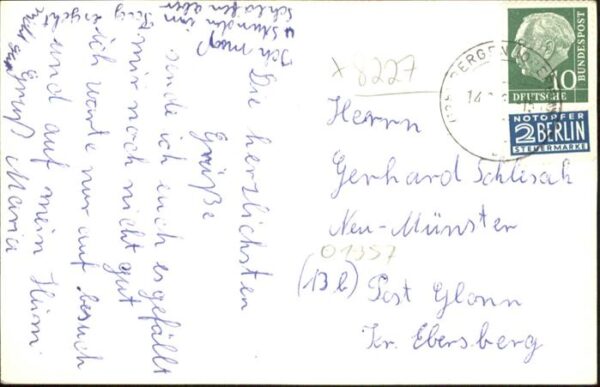 Die herzlichsten
Grüße
sende ich euch es gefällt
mir noch nicht gut
ich warte nur auf besuch
und auf mein Heim.
Gruß Maria
Ich muß
4 stunden im
schlafen aber
nicht
x 8227
BERGEN
14.
10
DEUTSCHE
BUNDESPOST
NOTOPFER
2 BERLIN
STEUERMARKE
Herrn
Gerhard Schlisak
Neu-Münster
01357
(13 b) Post Glonn
Kr. Ebersberg